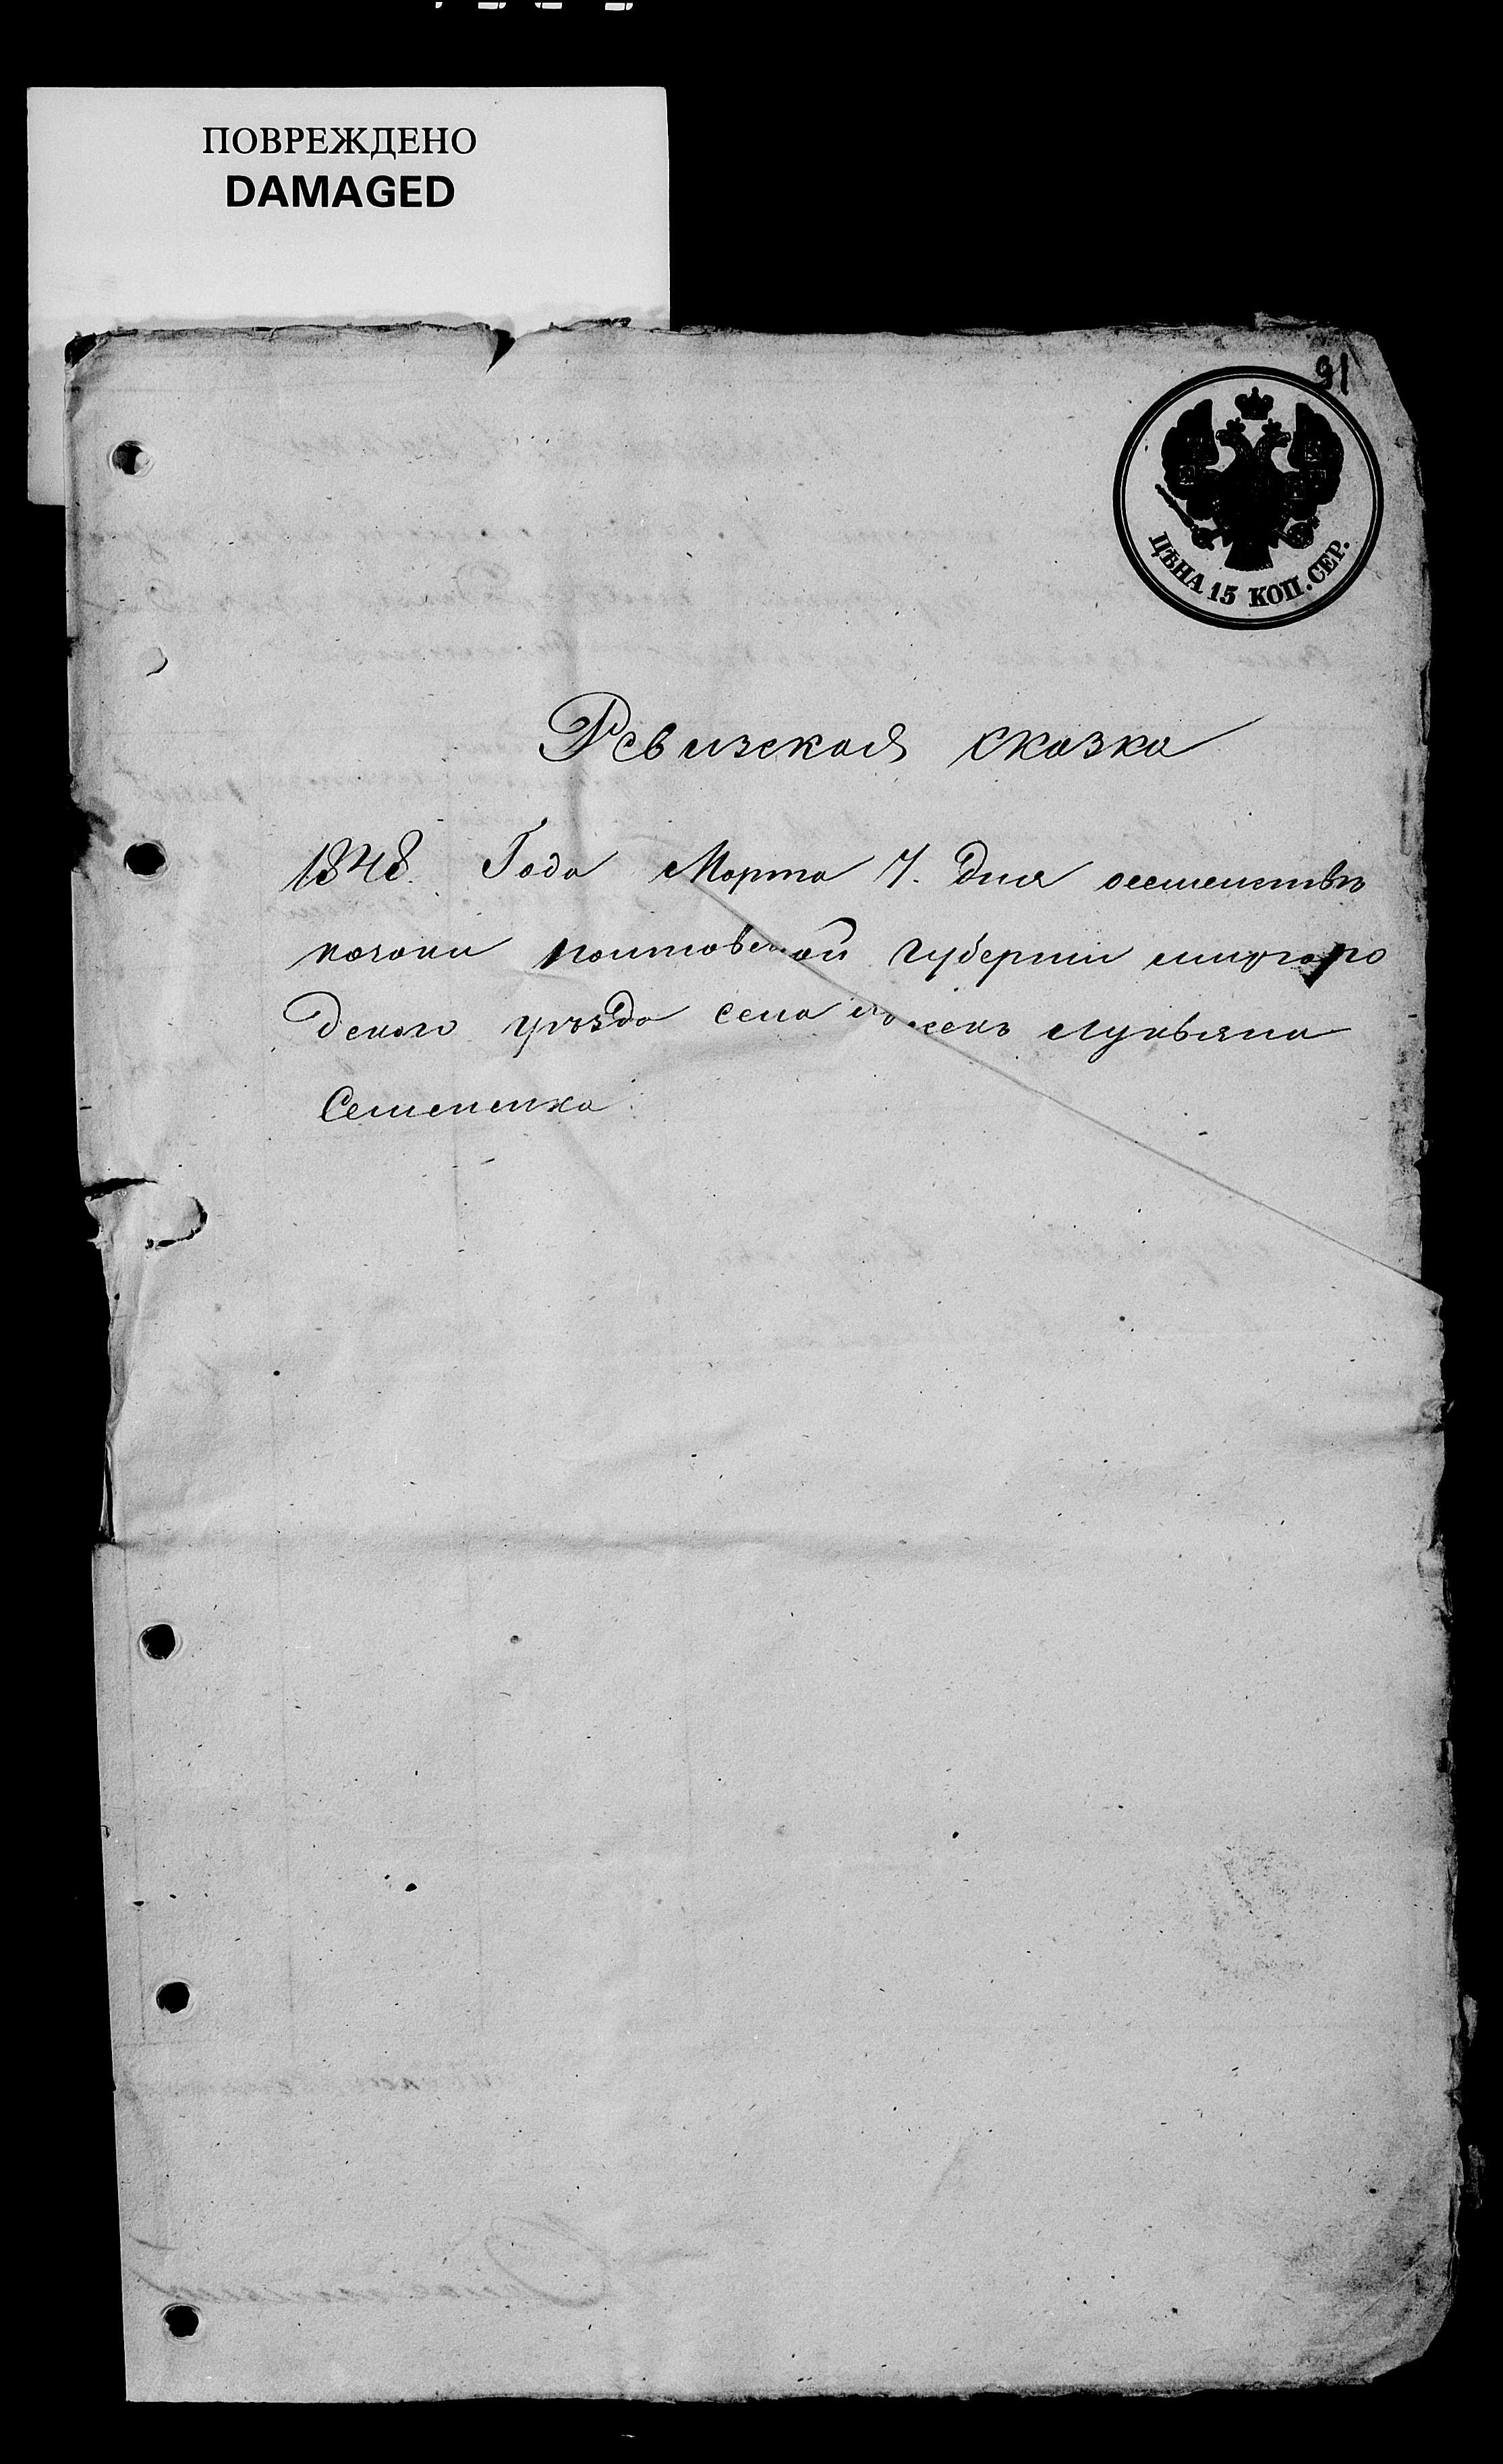 ПОВРЕЖДЕНО
DAMAGED
91
ЦѢНА 15 КОП. СЕР.
Ревизская сказка
1848. Года Марта 7. Дня
полтовской губернии миргоро
дского уѣзда села Лукьяна
Семененка